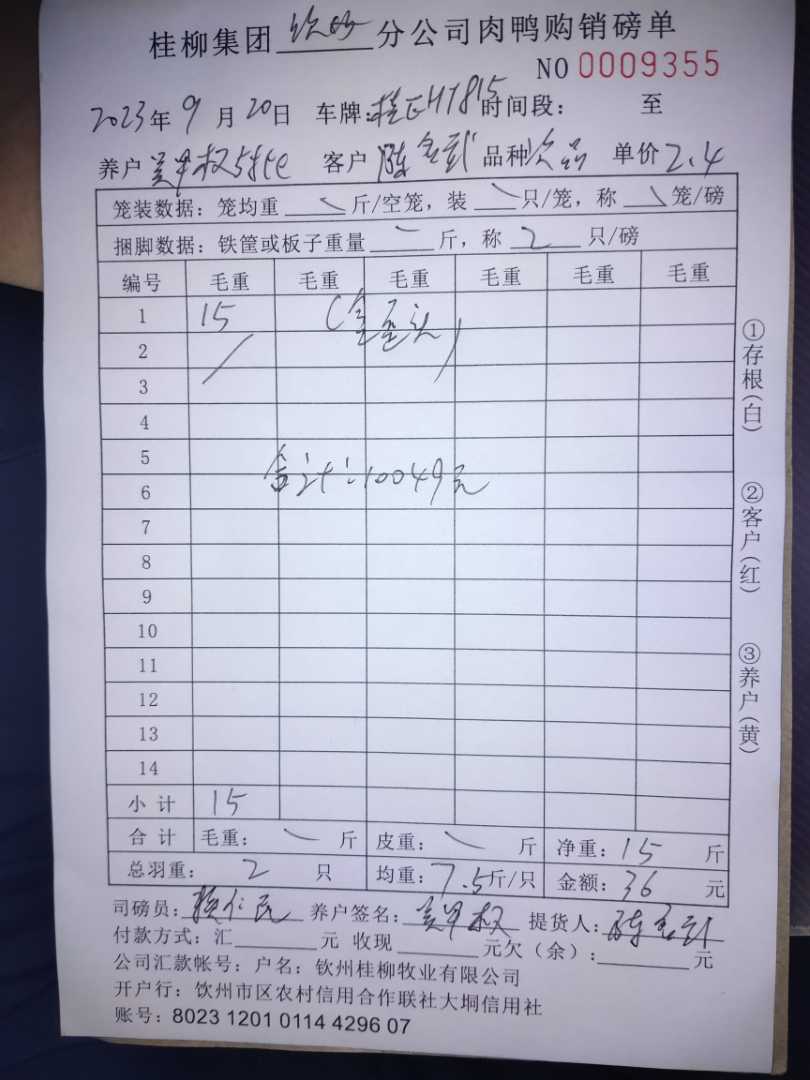 桂柳集团 钦州 分公司肉鸭购销磅单
NO 0009355
2023年 9月 20日 车牌: 时间段: 至
养户 客户 陈 品种 次品 单价 2.4
笼装数据: 笼均重 斤/空笼, 装 只/笼, 称 笼/磅
捆脚数据: 铁筐或板子重量 斤, 称 2 只/磅
编号 毛重 毛重 毛重 毛重 毛重 毛重
1 15
2
3
4
5
合计: 10049元
6
7
8
9
10
11
12
13
14
小计 15
合计 毛重: 斤 皮重: 斤 净重: 15 斤
总羽重: 2 只 均重: 7.5 斤/只 金额: 36 元
司磅员: 养户签名: 提货人:
付款方式: 汇 元 收现 元欠(余): 元
公司汇款帐号: 户名: 钦州桂柳牧业有限公司
开户行: 钦州市区农村信用合作联社大垌信用社
账号: 8023 1201 0114 4296 07
①存根(白)
②客户(红)
③养户(黄)